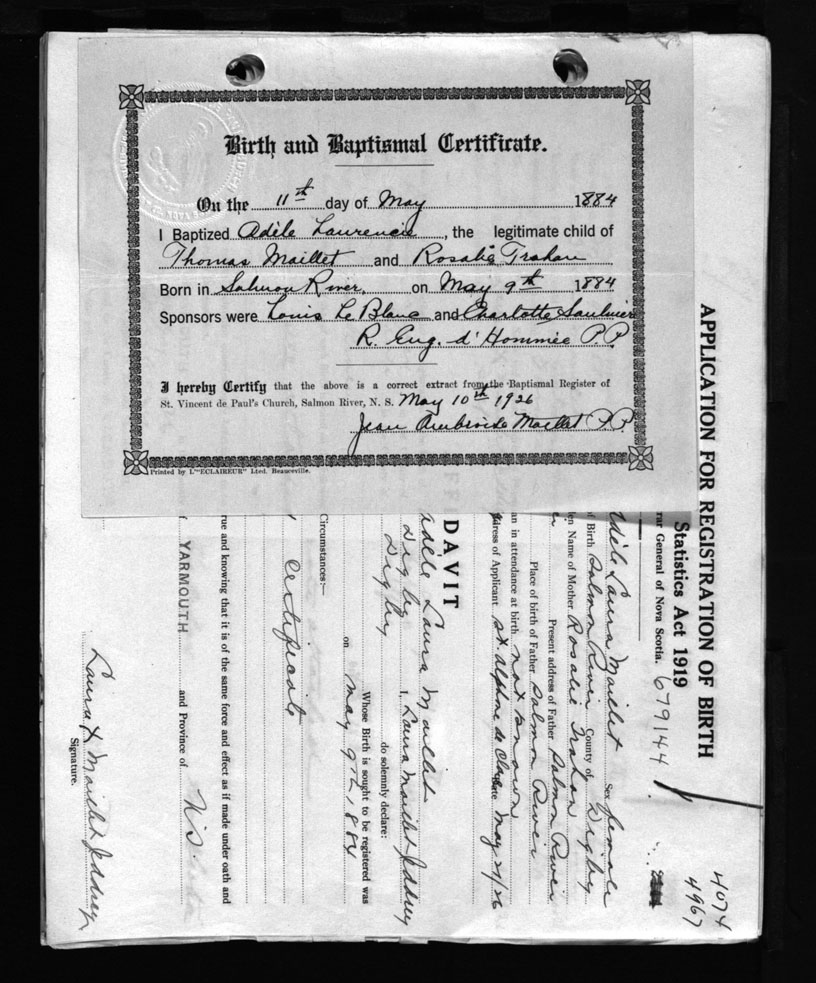 Birth and Baptismal Certificate.
On the 11th day of May 1884
I Baptized Adèle Laurencie, the legitimate child of
Thomas Maillet and Rosalie Trahan
Born in Salmon River, on May 9th 1884
Sponsors were Louis Le Blanc and Charlotte Saulnier
R. Eug. d'Hommée P.P.
I hereby Certify that the above is a correct extract from the Baptismal Register of
St. Vincent de Paul's Church, Salmon River, N. S. May 10th 1926
Jean Ambroise Maillet P.P.
Printed by L'"ECLAIREUR" Lted. Beauceville.
APPLICATION FOR REGISTRATION OF BIRTH
Statistics Act 1919
rar General of Nova Scotia. 679144
4074
4967
dèle Laura Maillet Sex female
of Birth Salmon River County of Digby
en Name of Mother Rosalie Trahan
Present address of Father Salmon River
Place of birth of Father Salmon River
an in attendance at birth not known
dress of Applicant St. Alphonse de Clare Date May 21/26
DAVIT
adèle Laura Maillet
Digby I, Laura Maillet Jeddrey
Digby do solemnly declare:
Whose Birth is sought to be registered was
on May 9th, 1884
Circumstances:—
Certificate
rue and knowing that it is of the same force and effect as if made under oath and
of YARMOUTH and Province of N.S.
Laura X Maillet Jeddrey
Signature.